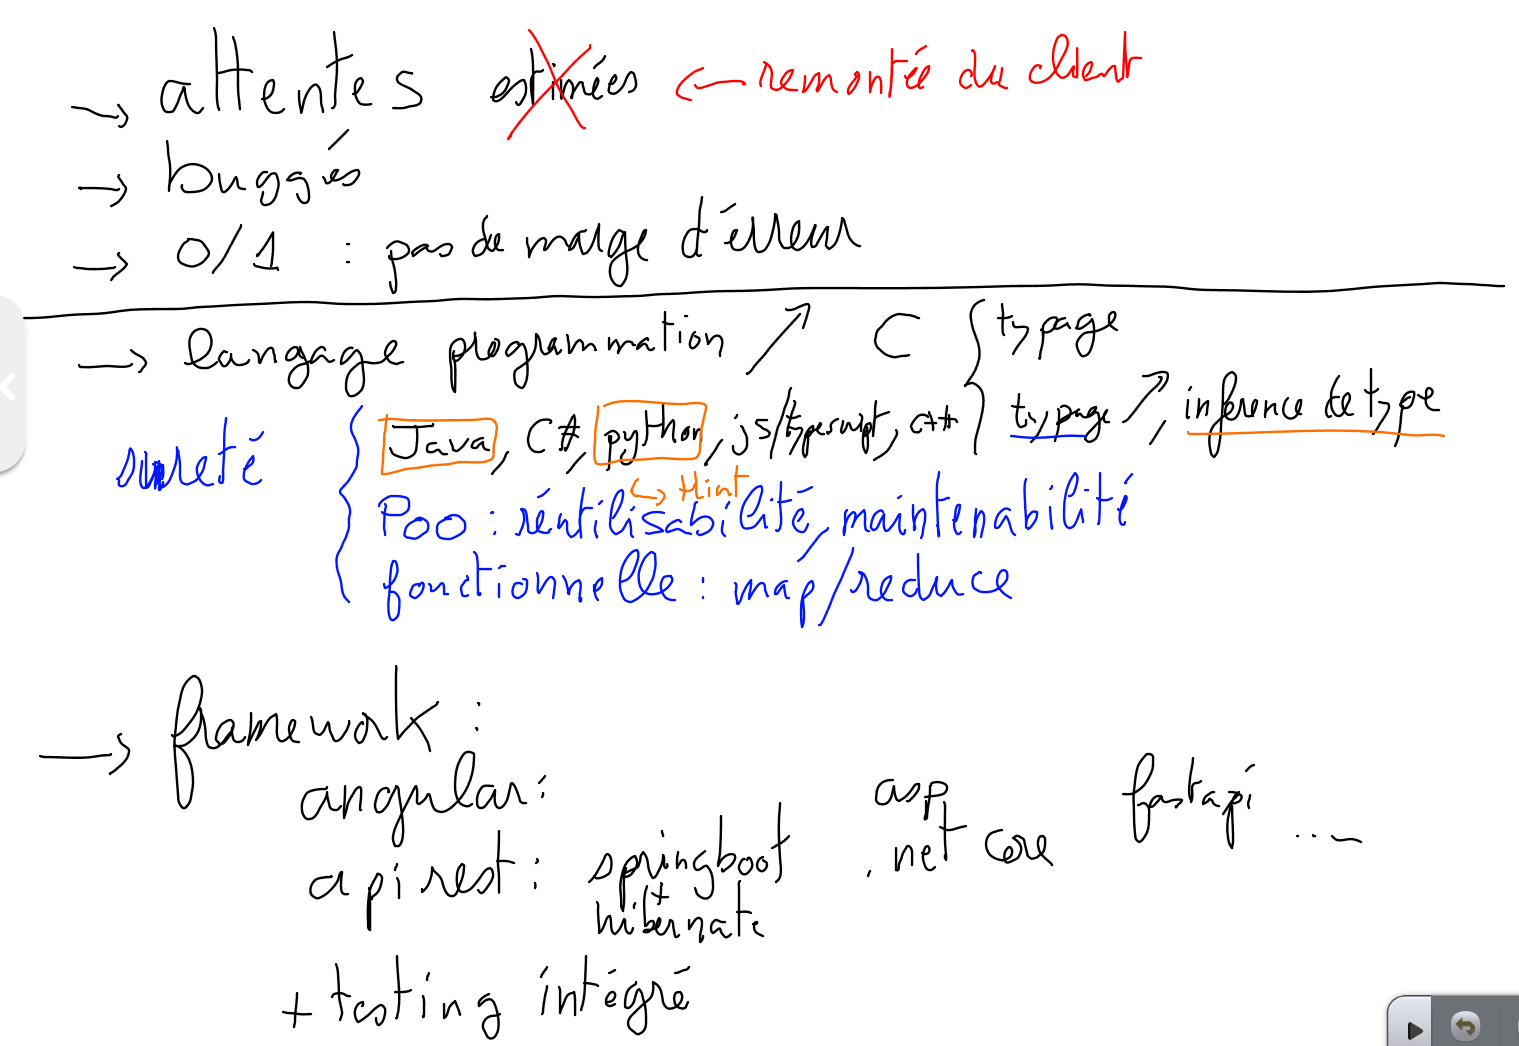 → attentes estimées ← remontée du client
→ buggés
→ 0/1 : pas de marge d'érreur
→ langage programmation ↗ C { typage
sureté { Java, C#, python, js/typescript, c++ } typage ↗, inférence de type
↳ Hint
POO : réutilisabilité, maintenabilité
fonctionnelle : map/reduce
→ framework :
angular :
api rest : springboot + hibernate asp .net core fastapi ...
+ testing intégré